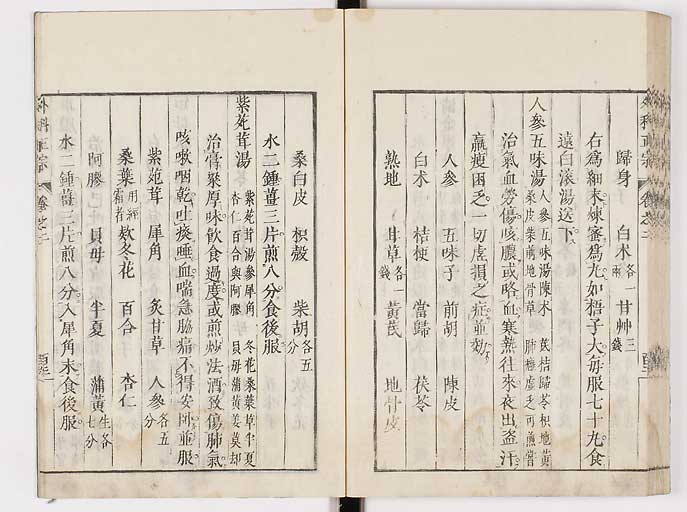 歸身 白朮各一兩 甘艸三錢
右爲細末煉蜜爲丸如梧子大每服七十丸食
遠白滾湯送下
人參五味湯 人參五味湯陳朮 芪桔歸苓枳地黃 桑皮柴前地骨草 肺癰虛乏可煎嘗
治氣血勞傷咳膿或咯血寒熱往來夜出盜汗
羸瘦困乏一切虛損之症並効
人參 五味子 前胡 陳皮
白朮 桔梗 當歸 茯苓
熟地 甘草各一錢 黃芪 地骨皮
桑白皮 枳殼 柴胡各五分
水二鍾薑三片煎八分食後服
紫苑茸湯 紫苑茸湯參犀角 冬花桑葉草半夏 杏仁百合與阿膠 貝母蒲黃姜莫却
治膏粱厚味飮食過度或煎炒法酒致傷肺氣
咳嗽咽乾吐痰唾血喘急脇痛不得安臥並服
紫苑茸 犀角 炙甘草 人參各五分
桑葉用經霜者 欵冬花 百合 杏仁
阿膠 貝母 半夏 蒲黃生各七分
水二鍾薑三片煎八分入犀角末食後服
外科正宗 卷之二